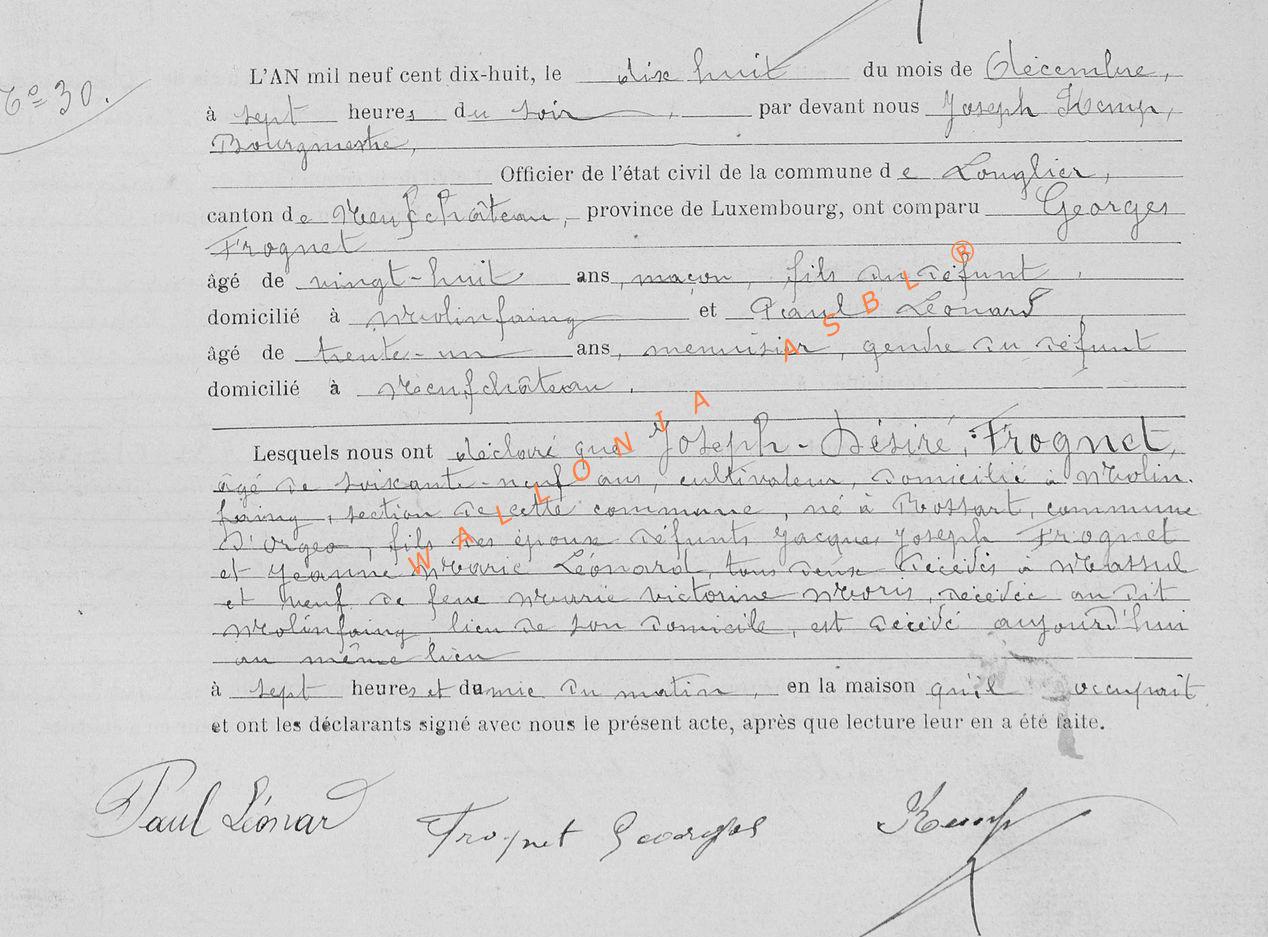 N° 30.
L'AN mil neuf cent dix-huit, le dix huit du mois de Décembre,
à sept heures du soir, par devant nous Joseph Kemp,
Bourgmestre,
Officier de l'état civil de la commune de Longlier,
canton de Neufchâteau, province de Luxembourg, ont comparu Georges
Frognet
âgé de vingt-huit ans, maçon, fils du défunt,
domicilié à Molinfaing et Paul Léonard
âgé de trente-un ans, menuisier, gendre du défunt
domicilié à Neufchâteau.
Lesquels nous ont déclaré que Joseph-Désiré Frognet,
âgé de soixante-neuf ans, cultivateur, domicilié à Molin.
faing, section de cette commune, né à Rossart, commune
d'Orgeo, fils des époux défunts Jacques Joseph Frognet
et Jeanne Marie Léonard, tous deux décédés à Massul
et veuf de feue Marie Victorine Moris, décédée au dit
Molinfaing lieu de son domicile, est décédé aujourd'hui
au même lieu
à sept heures et demie du matin, en la maison qu'il occupait
et ont les déclarants signé avec nous le présent acte, après que lecture leur en a été faite.
Paul Léonard Frognet Georges Kemp
WALLONIA ASBL ®